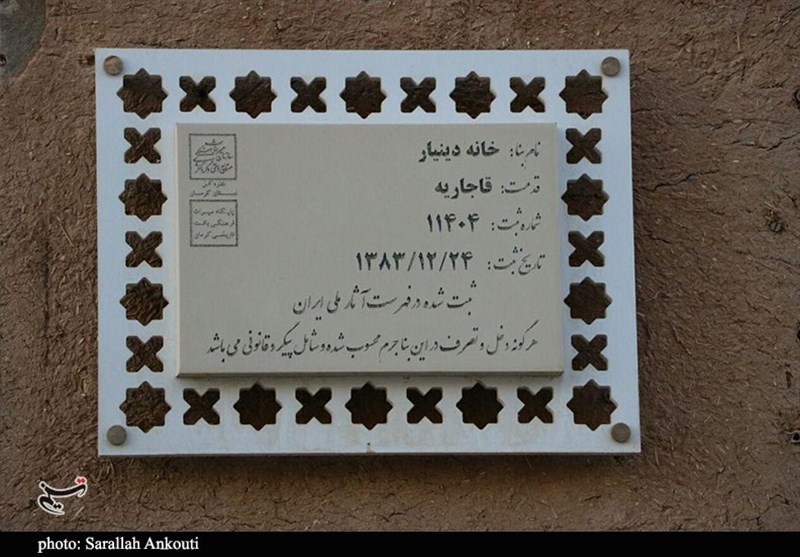 نام بنا: خانه دینیار
قدمت: قاجاریه
شماره ثبت: ۱۱۴۰۴
تاریخ ثبت: ۱۳۸۳/۱۲/۲۴
ثبت شده در فهرست آثار ملی ایران
هرگونه دخل و تصرف در این بنا جرم محسوب شده و شامل پیگرد قانونی می باشد
پایگاه میراث
فرهنگی بافت
تاریخی کرمان
تسنیم
photo: Sarallah Ankouti